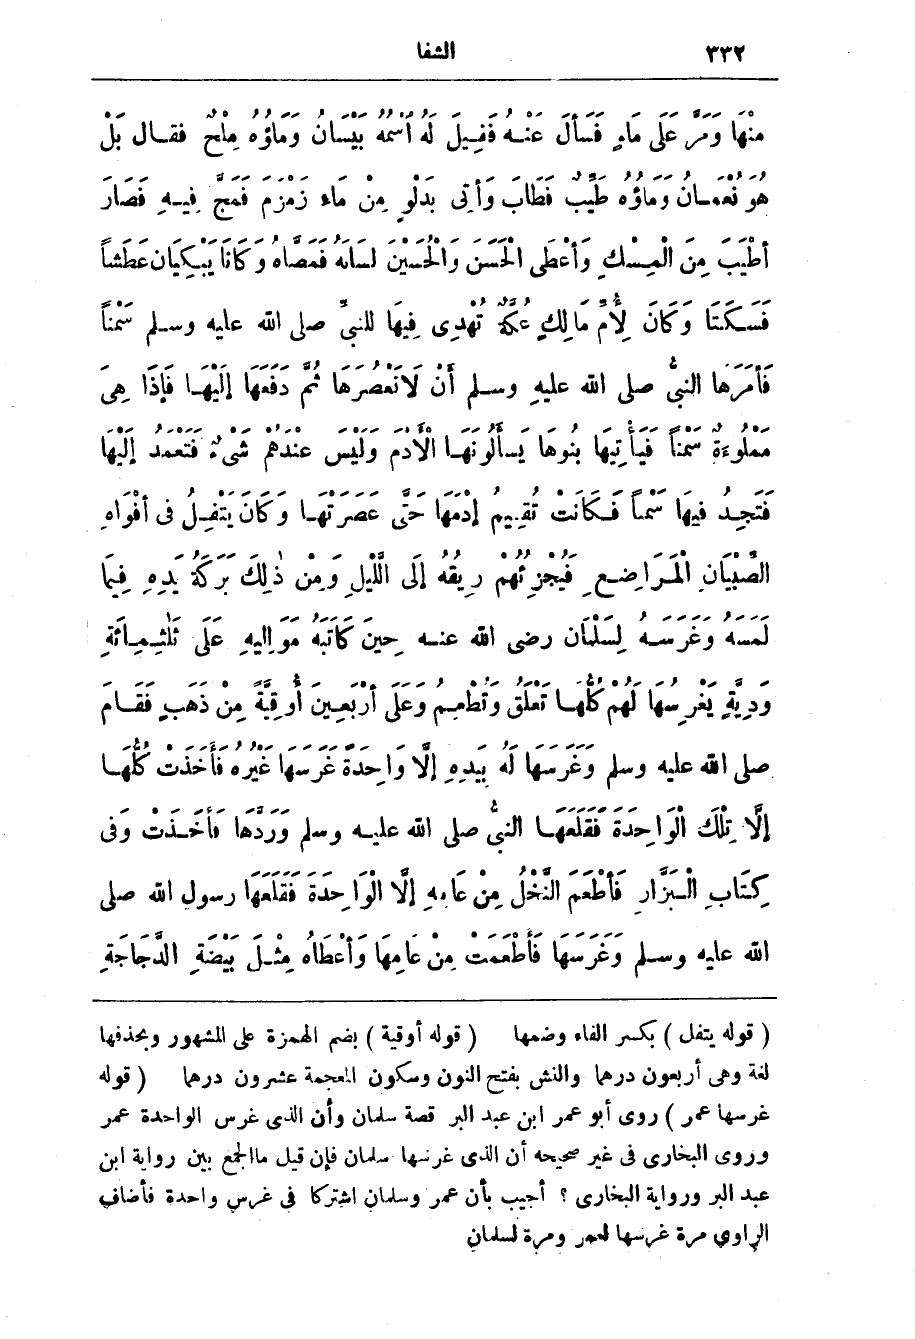 ٣٣٢ الشفا
مِنْهَا وَمَرَّ عَلَى مَاءٍ فَسَأَلَ عَنْهُ فَقِيلَ لَهُ اسْمُهُ بَيْسَانُ وَمَاؤُهُ مِلْحٌ فقال بَلْ
هُوَ نُعْمَانُ وَمَاؤُهُ طَيِّبٌ فَطَابَ وَأُتِىَ بِدَلْوٍ مِنْ مَاءِ زَمْزَمَ فَمَجَّ فِيهِ فَصَارَ
أَطْيَبَ مِنَ الْمِسْكِ وَأَعْطَى الْحَسَنَ وَالْحُسَيْنَ لِسَانَهُ فَمَصَّاهُ وَكَانَا يَبْكِيَانِ عَطَشاً
فَسَكَتَا وَكَانَ لِأُمِّ مَالِكٍ عُكَّةٌ تُهْدِى فِيهَا للنبىِّ صلى الله عليه وسلم سَمْناً
فَأَمَرَهَا النبىُّ صلى الله عليهِ وسلم أَنْ لَاتَعْصُرَهَا ثُمَّ دَفَعَهَا إِلَيْهَا فَإِذَا هِىَ
مَمْلُوءَةٌ سَمْناً فَيَأْتِيهَا بَنُوهَا يَسأَلُونَهَا الْأُدْمَ وَلَيْسَ عِنْدَهُمْ شَىْءٌ فَتَعْمَدُ إِلَيْهَا
فَتَجِدُ فِيهَا سَمْناً فَكَانَتْ تُقِيمُ إِدْمَهَا حَتَّى عَصَرَتْهَا وَكَانَ يَتْفِلُ فى أَفْوَاهِ
الصِّبْيَانِ الْمَرَاضِعِ فَيُجْزِئُهُمْ رِيقُهُ إِلَى اللَّيْلِ وَمِنْ ذٰلِكَ بَرَكَةُ يَدِهِ فِيمَا
لَمَسَهُ وَغَرَسَهُ لِسَلْمَان رضى الله عنه حِينَ كَاتَبَهُ مَوَالِيهِ عَلَى ثَلٰثِمِائَةِ
وَدِيَّةٍ يَغْرِسُهَا لَهُمْ كُلُّهَا تَعْلَقُ وَتُطْعِمُ وَعَلَى أَرْبَعِينَ أُوقِيَّةً مِنْ ذَهَبٍ فَقَامَ
صلى الله عليه وسلم وَغَرَسَهَا لَهُ بِيَدِهِ إِلَّا وَاحِدَةً غَرَسَهَا غَيْرُهُ فَأَخَذَتْ كُلُّهَا
إِلَّا تِلْكَ الْوَاحِدَةَ فَقَلَعَهَا النبىُّ صلى الله عليه وسلم وَرَدَّهَا فَأَخَذَتْ وَفى
كِتَابِ الْبَزَّارِ فَأَطْعَمَ النَّخْلُ مِنْ عَامِهِ إِلَّا الْوَاحِدَةَ فَقَلَعَهَا رسول الله صلى
الله عليه وسلم وَغَرَسَهَا فَأَطْعَمَتْ مِنْ عَامِهَا وَأَعْطَاهُ مِثْلَ بَيْضَةِ الدَّجَاجَةِ
( قوله يتفل ) بكسر الفاء وضمها ( قوله أوقية ) بضم الهمزة على المشهور وبحذفها
لغة وهى أربعون درهما والنش بفتح النون وسكون المعجمة عشرون درهما ( قوله
غرسها عمر ) روى أبو عمر ابن عبد البر قصة سلمان وأن الذى غرس الواحدة عمر
وروى البخارى فى غير صحيحه أن الذى غرسها سلمان فإن قيل ماالجمع بين رواية ابن
عبد البر ورواية البخارى ؟ أجيب بأن عمر وسلمان اشتركا فى غرس واحدة فأضاف
الراوي مرة غرسها لعمر ومرة لسلمان